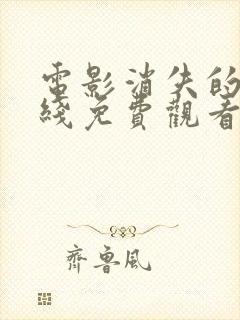 電影消失的
綫免費觀看
齊魯風